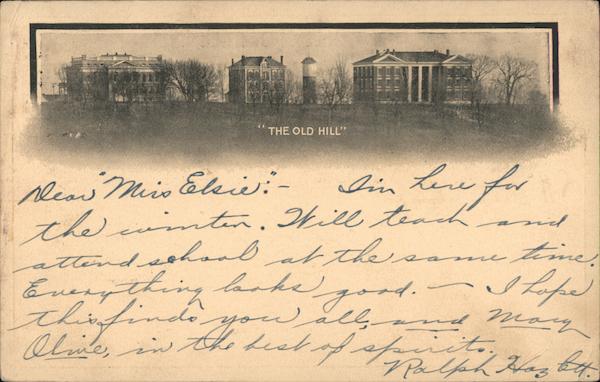 "THE OLD HILL"
Dear "Miss Elsie":- I'm here for
the winter. Will teach and
attend school at the same time.
Everything looks good. — I hope
this finds you all, and Mary
Olive, in the best of spirits.
Ralph